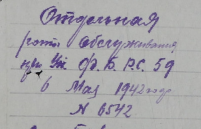 Отдельная
рота обслуживания
при Ф. Б. Р.С. 59
6 Мая 1942 года
N 6542